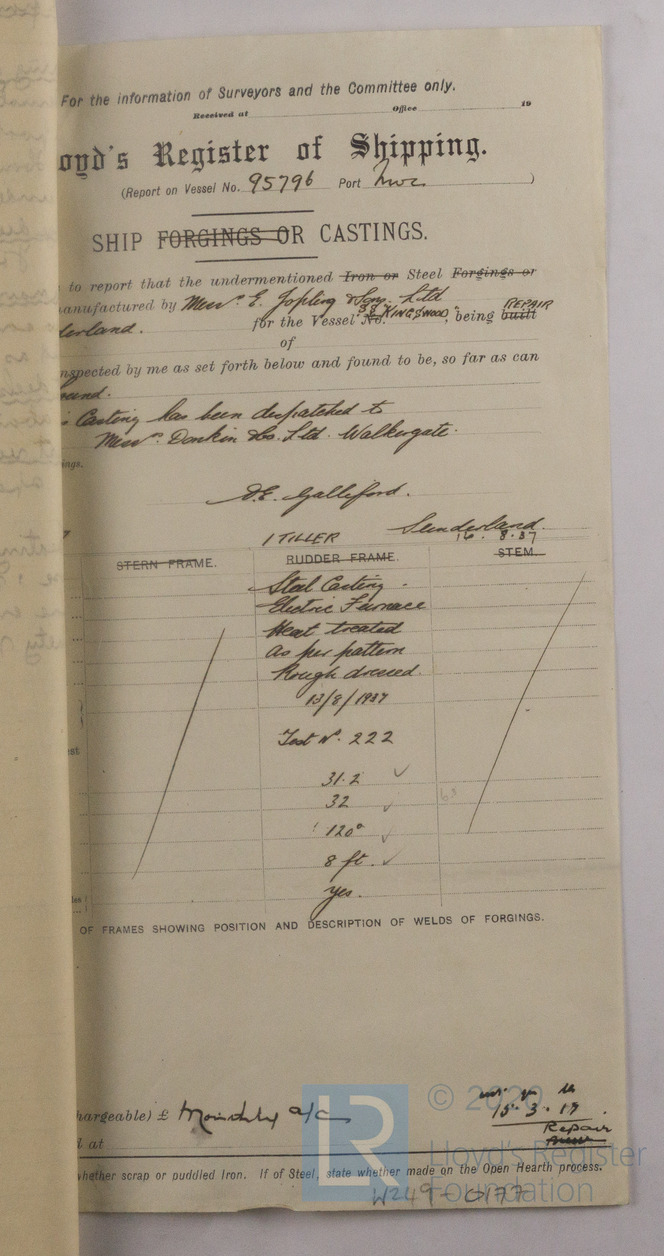 For the information of Surveyors and the Committee only.
Received at Office 19
oyd's Register of Shipping.
(Report on Vessel No. 95796 Port Nwc )
SHIP FORGINGS OR CASTINGS.
to report that the undermentioned Iron or Steel Forgings or
anufactured by Messrs. E. Jopling & Sons. Ltd
REPAIR
derland. for the Vessel No. "KINGSWOOD", being built
of
nspected by me as set forth below and found to be, so far as can
ound.
s Casting has been despatched to
Messrs. Donkin & Co. Ltd. Walkergate.
ings.
D.E. Galliford.
7 1 TILLER Sunderland.
16. 8. 37
STERN FRAME. RUDDER FRAME. STEM.
Steel Casting.
Electric Furnace
Heat treated
As per pattern
Rough dressed.
13/8/1937
Test No. 222
31.2
32
120°
8 ft.
yes.
OF FRAMES SHOWING POSITION AND DESCRIPTION OF WELDS OF FORGINGS.
hargeable) £ Monthly a/c
15. 3. 17.
Repair
l at
whether scrap or puddled Iron. If of Steel, state whether made on the Open Hearth process.
© 2020
LR Lloyd's Register
Foundation
W249-0177